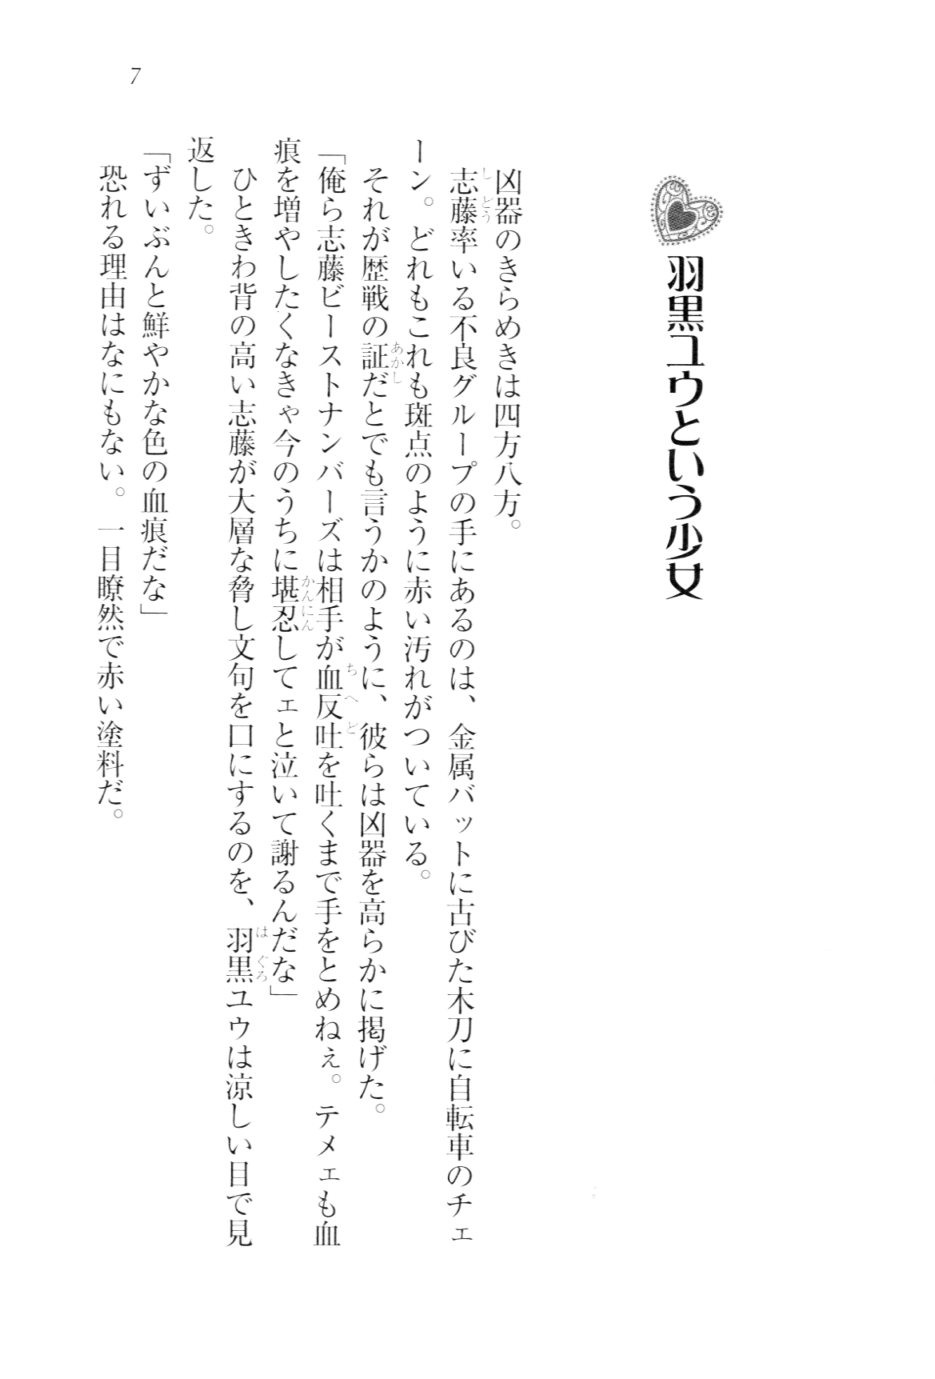 7
羽黒ユウという少女
凶器のきらめきは四方八方。
志藤率いる不良グループの手にあるのは、金属バットに古びた木刀に自転車のチェ
ーン。どれもこれも斑点のように赤い汚れがついている。
それが歴戦の証だとでも言うかのように、彼らは凶器を高らかに掲げた。
「俺ら志藤ビーストナンバーズは相手が血反吐を吐くまで手をとめねぇ。テメェも血
痕を増やしたくなきゃ今のうちに堪忍してェと泣いて謝るんだな」
ひときわ背の高い志藤が大層な脅し文句を口にするのを、羽黒ユウは涼しい目で見
返した。
「ずいぶんと鮮やかな色の血痕だな」
恐れる理由はなにもない。一目瞭然で赤い塗料だ。